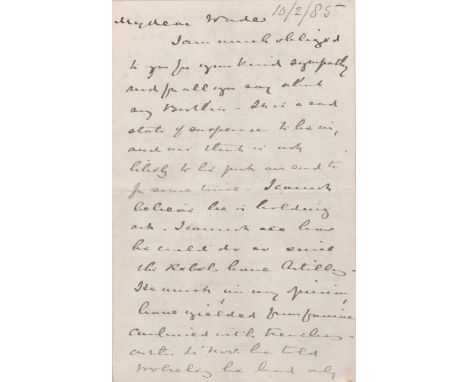 10/2/85
My dear Wade
I am much obliged
to you for your kind sympathy
and for all you say about
my Brother - It is a sad
state of suspense to be in,
and one that is not
likely to be put an end to
for some time - I cannot
believe he is holding
out - I cannot see how
he could do so since
the Rebels have Artillery -
He must, in my opinion,
have yielded from famine
combined with treachery -
as the 4 Nov. he told
Wolseley he had only